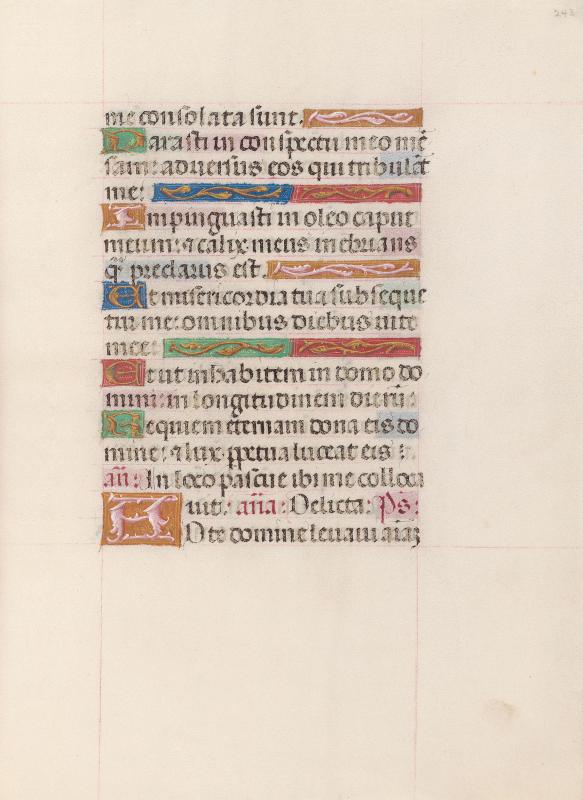 243
me consolata sunt.
Parasti in conspectu meo mē
sam: adversus eos qui tribulāt
me:
Impinguasti in oleo caput
meum: & calix meus inebrians
q̄ preclarus est.
Et misericordia tua subseque
tur me: omnibus diebus uite
mee:
Et ut inhabitem in domo do
mini: in longitudinem dierū
Requiem eternam dona eis do
mine: & lux ꝑpetua luceat eis
añ: In loco pascue ibi me colloca
uit. aña: Delicta: Ps:
AD te domine levavi aīaꝫ